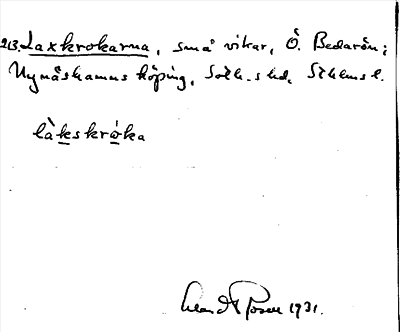 213. Laxkrokarna, små vikar, Ö. Bedarön;
Nynäshamns köping, Soth. hd. Sthlms l.
làkskrò̀ka
1931.